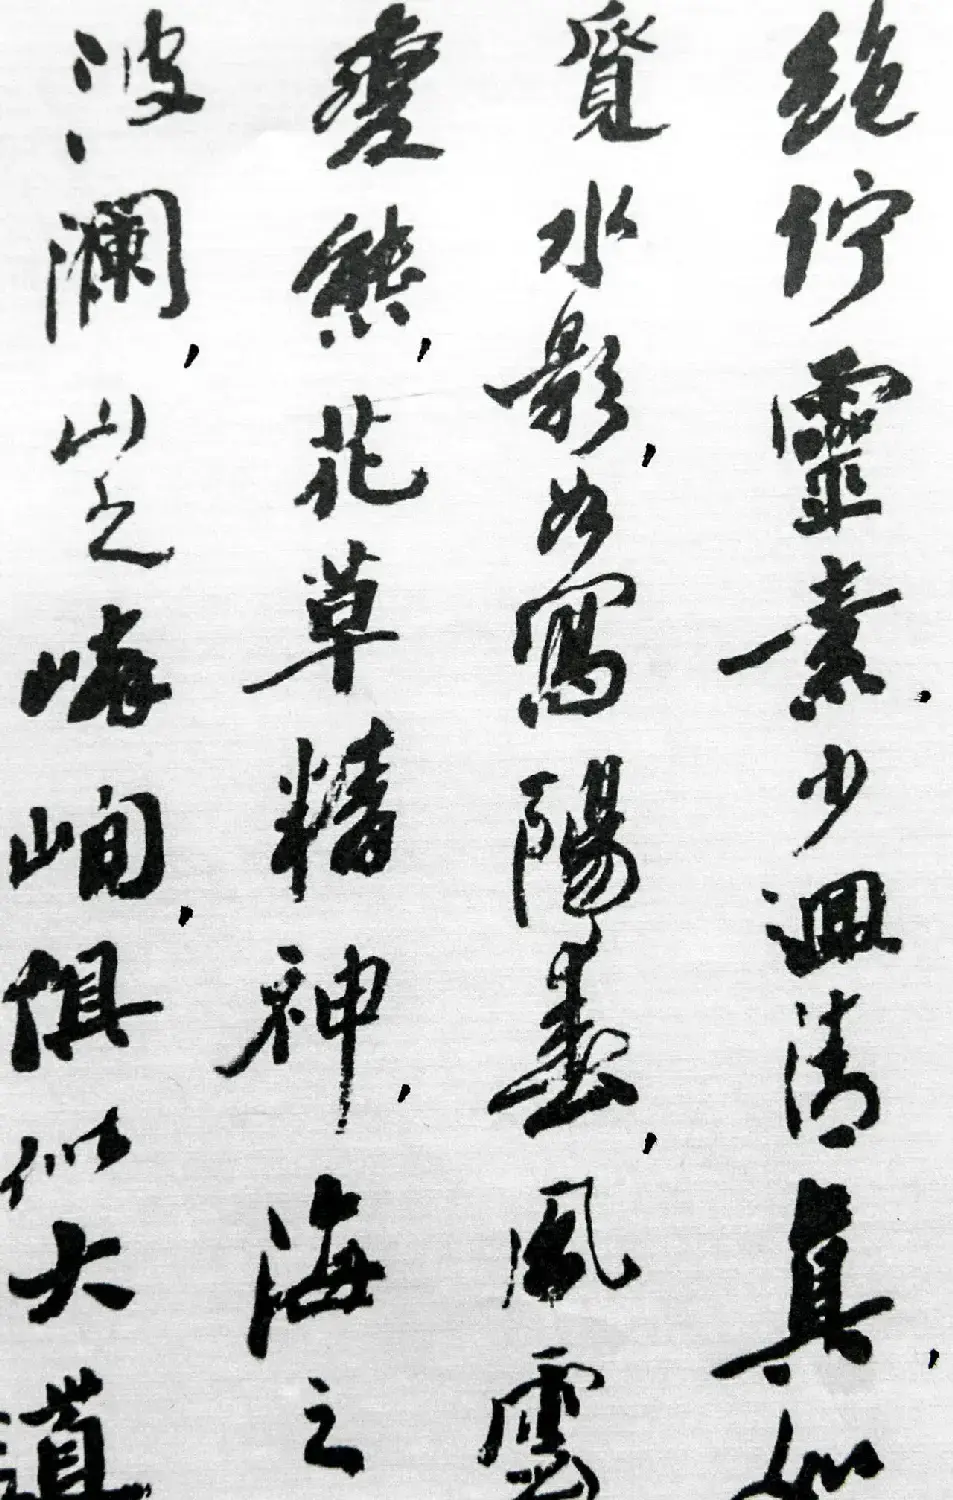 絕佇靈素.少迴清真,如
覓水影,如寫陽春,風雲
變態,花草精神,海之
波瀾,山之嶙峋,俱似大道